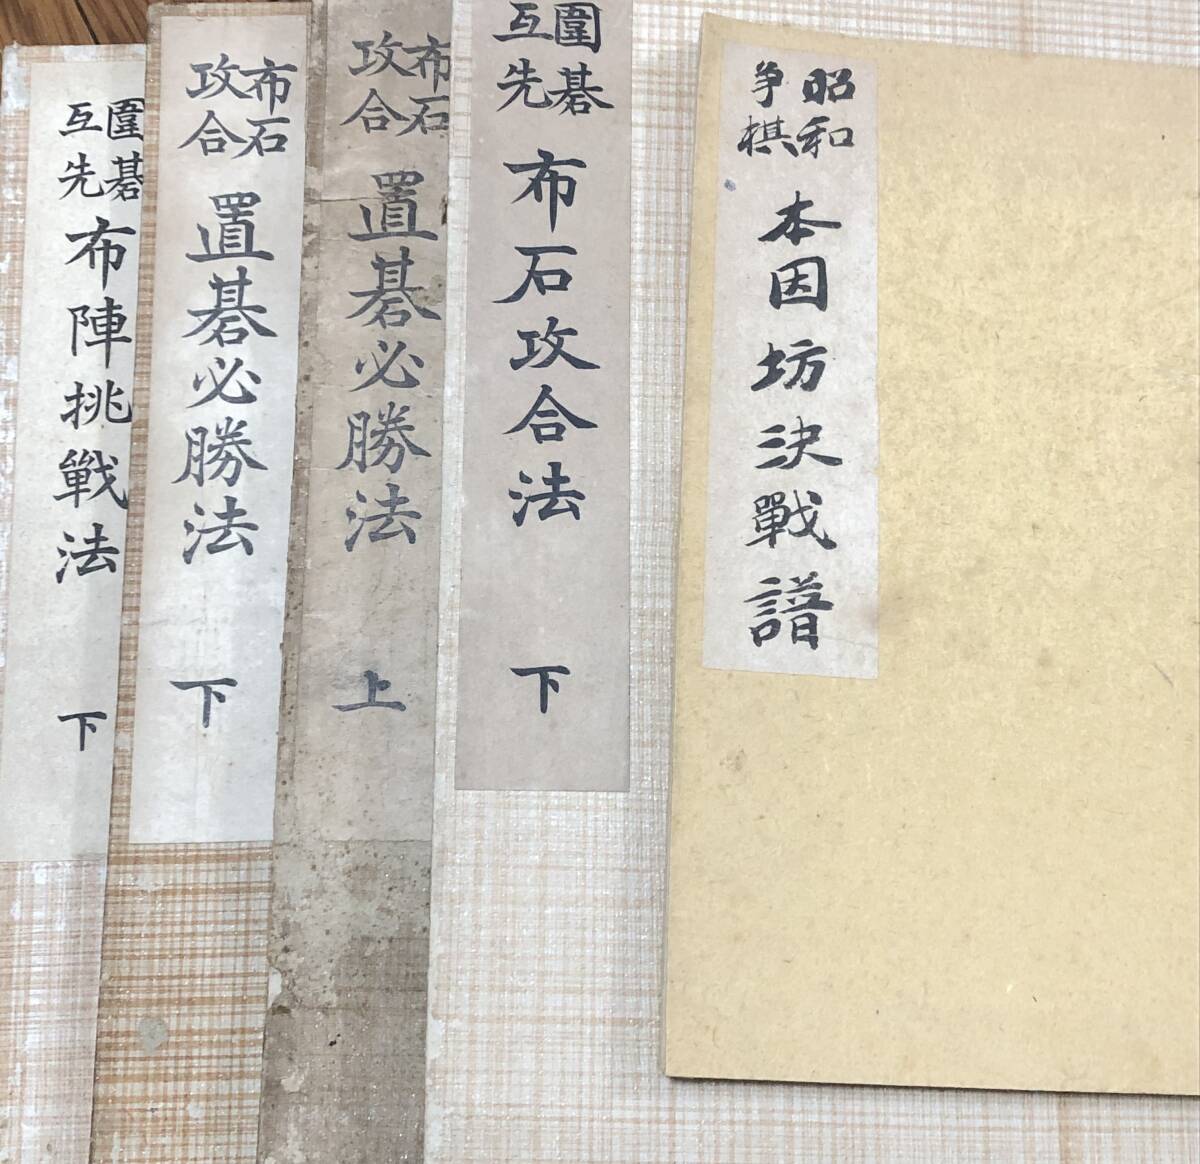 昭和
争棋
本因坊決戰譜
圍碁
互先
布石攻合法
下
布石
攻合
置碁必勝法
上
布石
攻合
置碁必勝法
下
圍碁
互先
布陣挑戰法
下